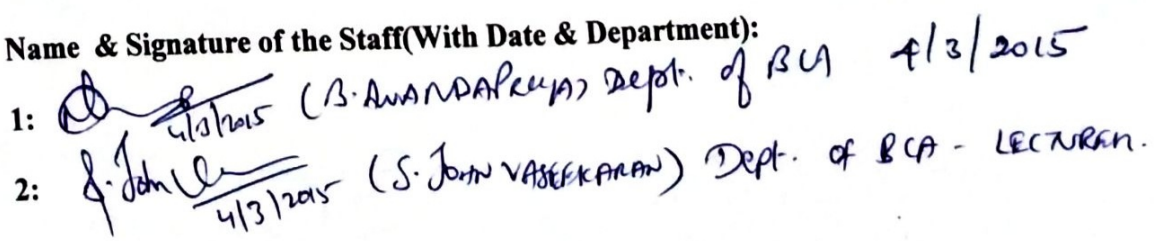 Name & Signature of the Staff(With Date & Department):
1: 4/3/2015 (B. ANANDAPRIYA) Dept. of BCA 4/3/2015
2: S. John 4/3/2015 (S. JOHN VASEEKARAN) Dept. of BCA - LECTURER.